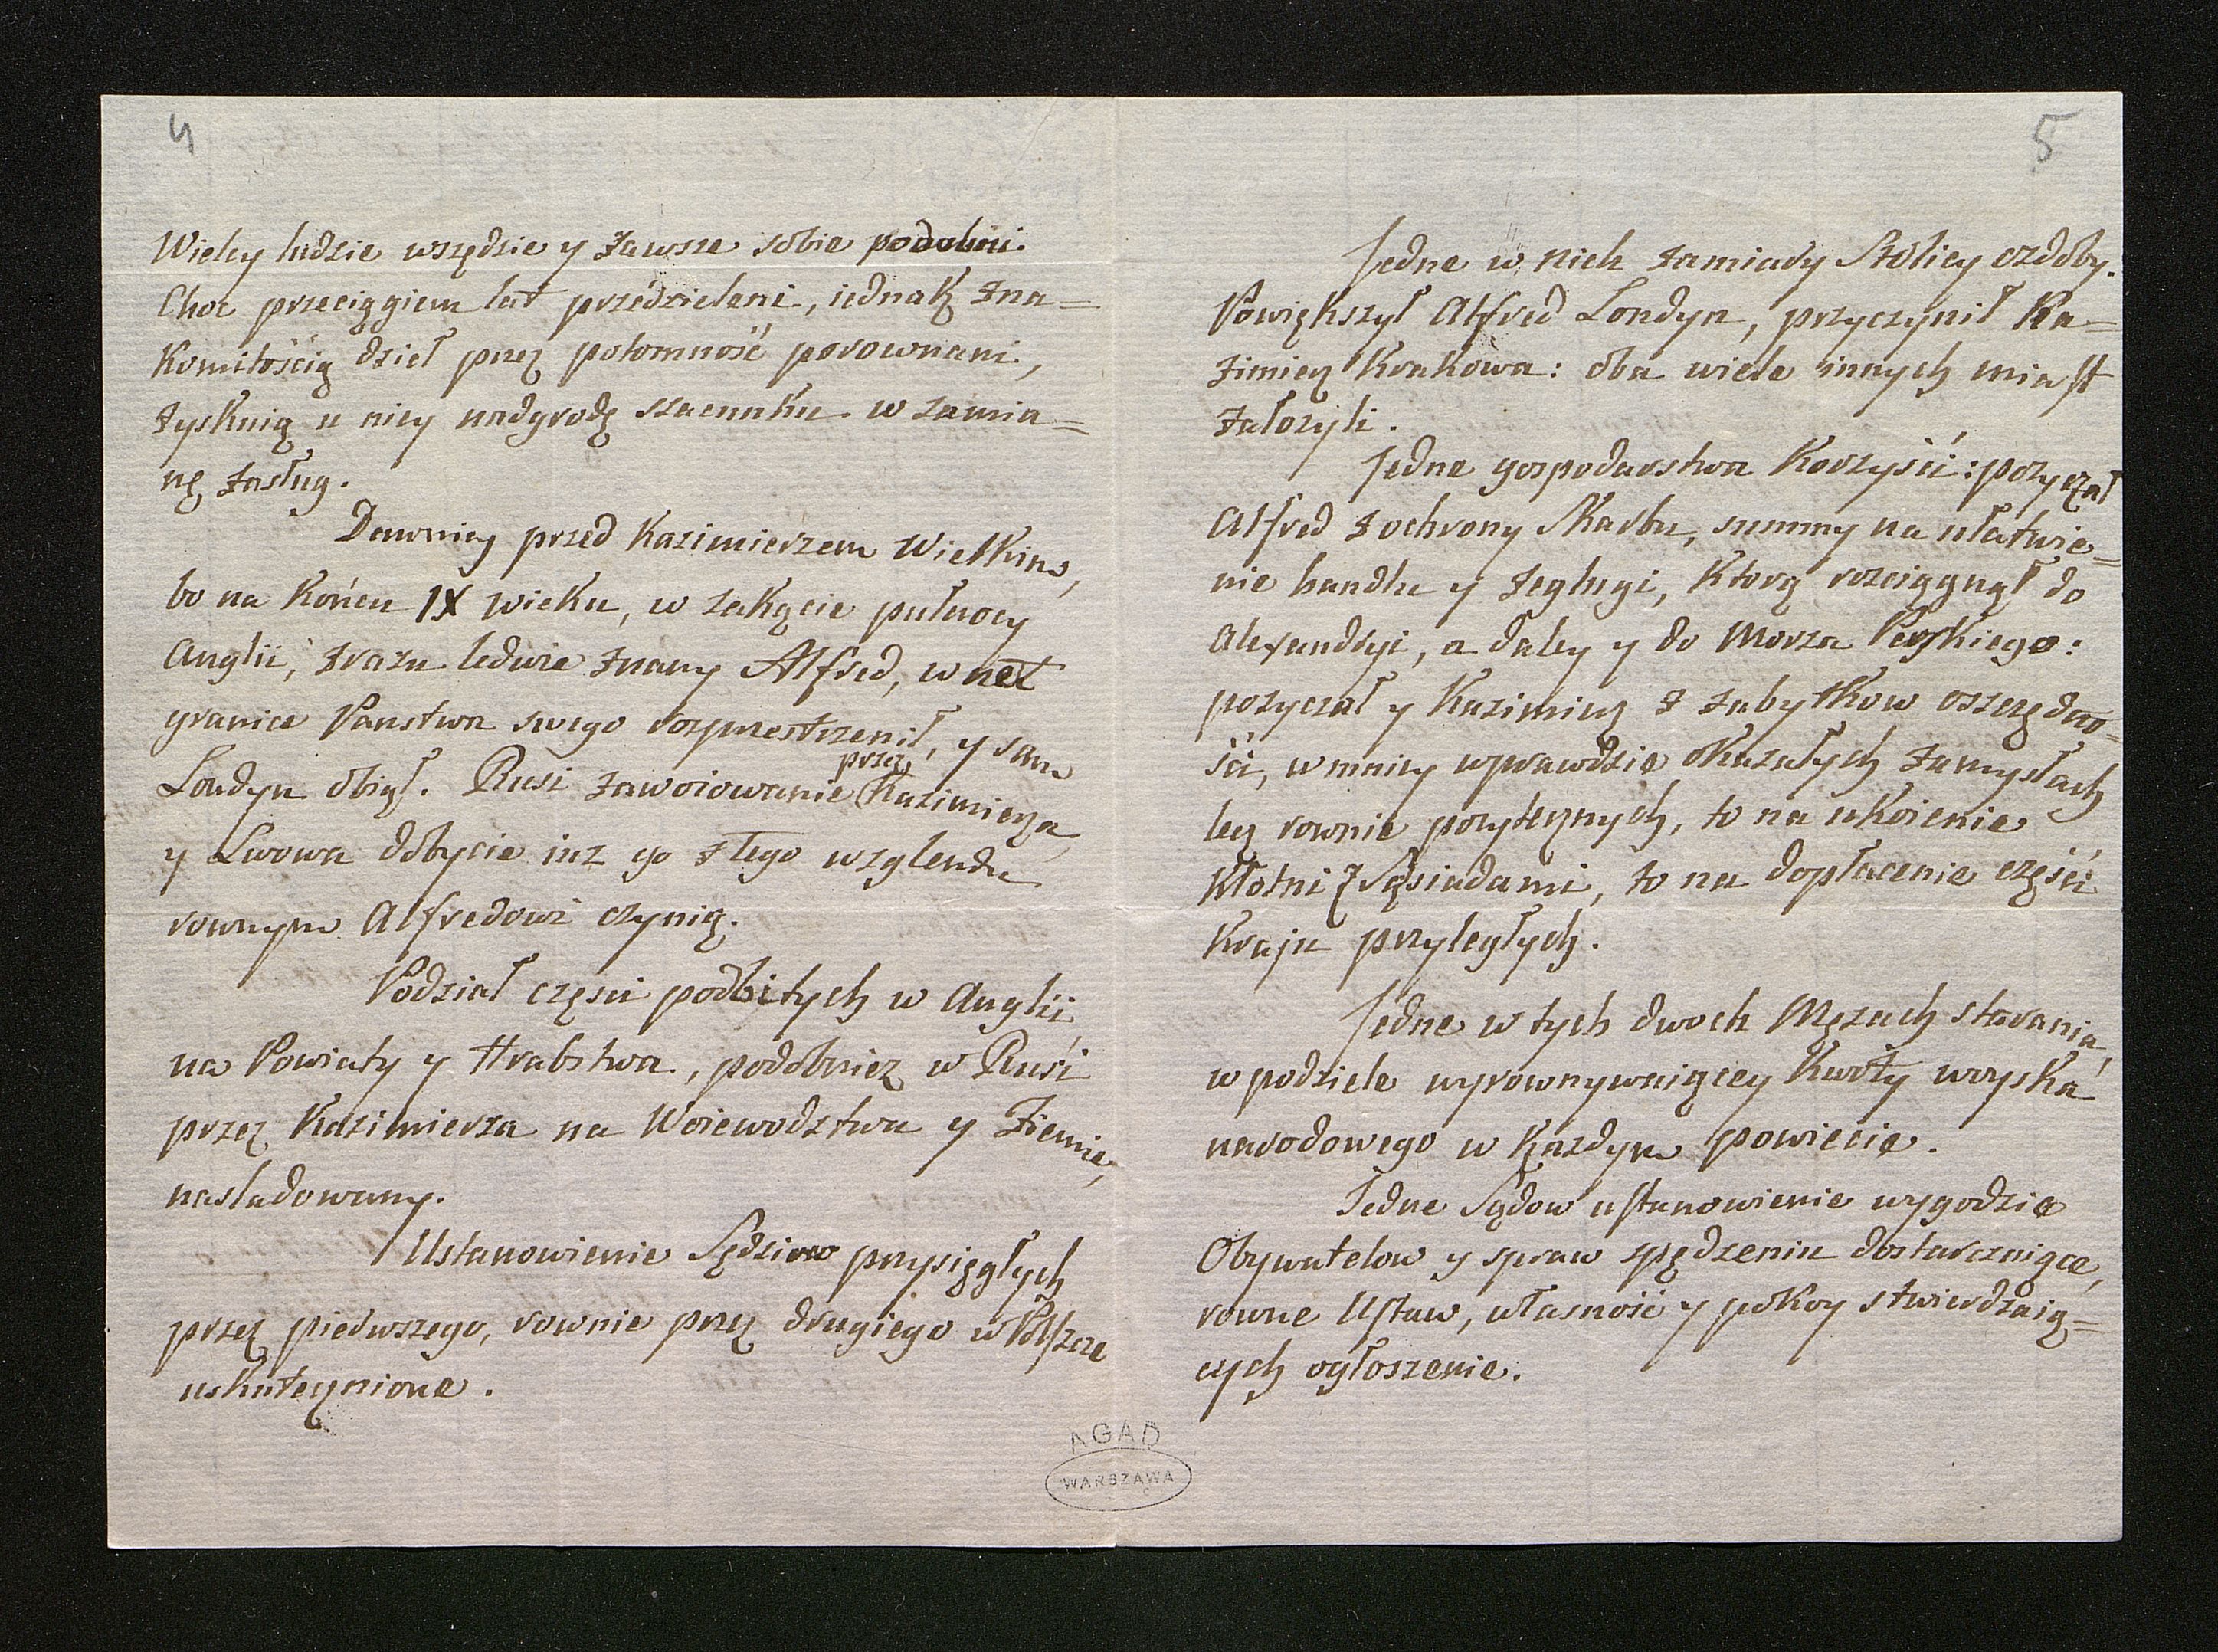 4
Wielcy ludzie wszędzie y zawsze sobie podobni.
Choc przeciągiem lat przedzieleni, iednak zna=
komitością dzieł przez potomność porownani,
zyskuią u niey nadgrodę szacunku w zamia=
nę zasług.
Dawniey przed Kazimierzem Wielkim,
bo na końcu IX wieku, w zakącie pułnocy
Anglii, zrazu ledwie znany Alfred, wnet
granice Panstwa swego rozprzestrzenił, y sam
Londyn obiął. Rusi zawoiowanie przez Kazimierza
y Lwowa dobycie iuz go z tego wzglendu
rownym Alfredowi czynią.
Podział części podbitych w Anglii
na Powiaty y Hrabstwa, podobniez w Rusi
przez Kazimierza na Woiewodztwa y Ziemie,
nasladowany.
Ustanowienie Sędziow przysięgłych
przez pierwszego, rownie przez drugiego w Polszcze
uskutecznione.
5
Jedne w nich zamiary Stolicy ozdoby.
Powiększył Alfred Londyn, przyczynił Ka=
zimierz Krakowa: oba wiele innych miast
założyli.
Jedne gospodarstwa korzyści: pozyczał
Alfred z ochrony Skarbu, summy na ułatwie=
nie handlu y zeglugi, ktorą rozciągnął do
Alexandryi, a daley y do Morza Perskiego:
pozyczał y Kazimierz z zabytkow oszczędno=
ści, w mniey wprawdzie okazałych zamysłach
lecz rownie pozytecznych, to na ukoienie
kłotni z Sąsiadami, to na dopłacenie części
kraju przyległych.
Jedne w tych dwoch Męzach starania,
w podziele wyrownywaiącey kwoty woyska
narodowego w kazdym powiecie.
Jedne Sądow ustanowienie wygodzie
Obywatelow y spraw spędzeniu dostarczaiące,
rowne Ustaw, własność y pokoy stwierdzaią=
cych ogłoszenie.
AGAD
WARSZAWA